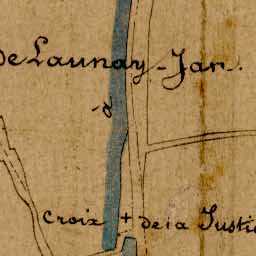 De Launay-Jan.
Croix + de la Justi